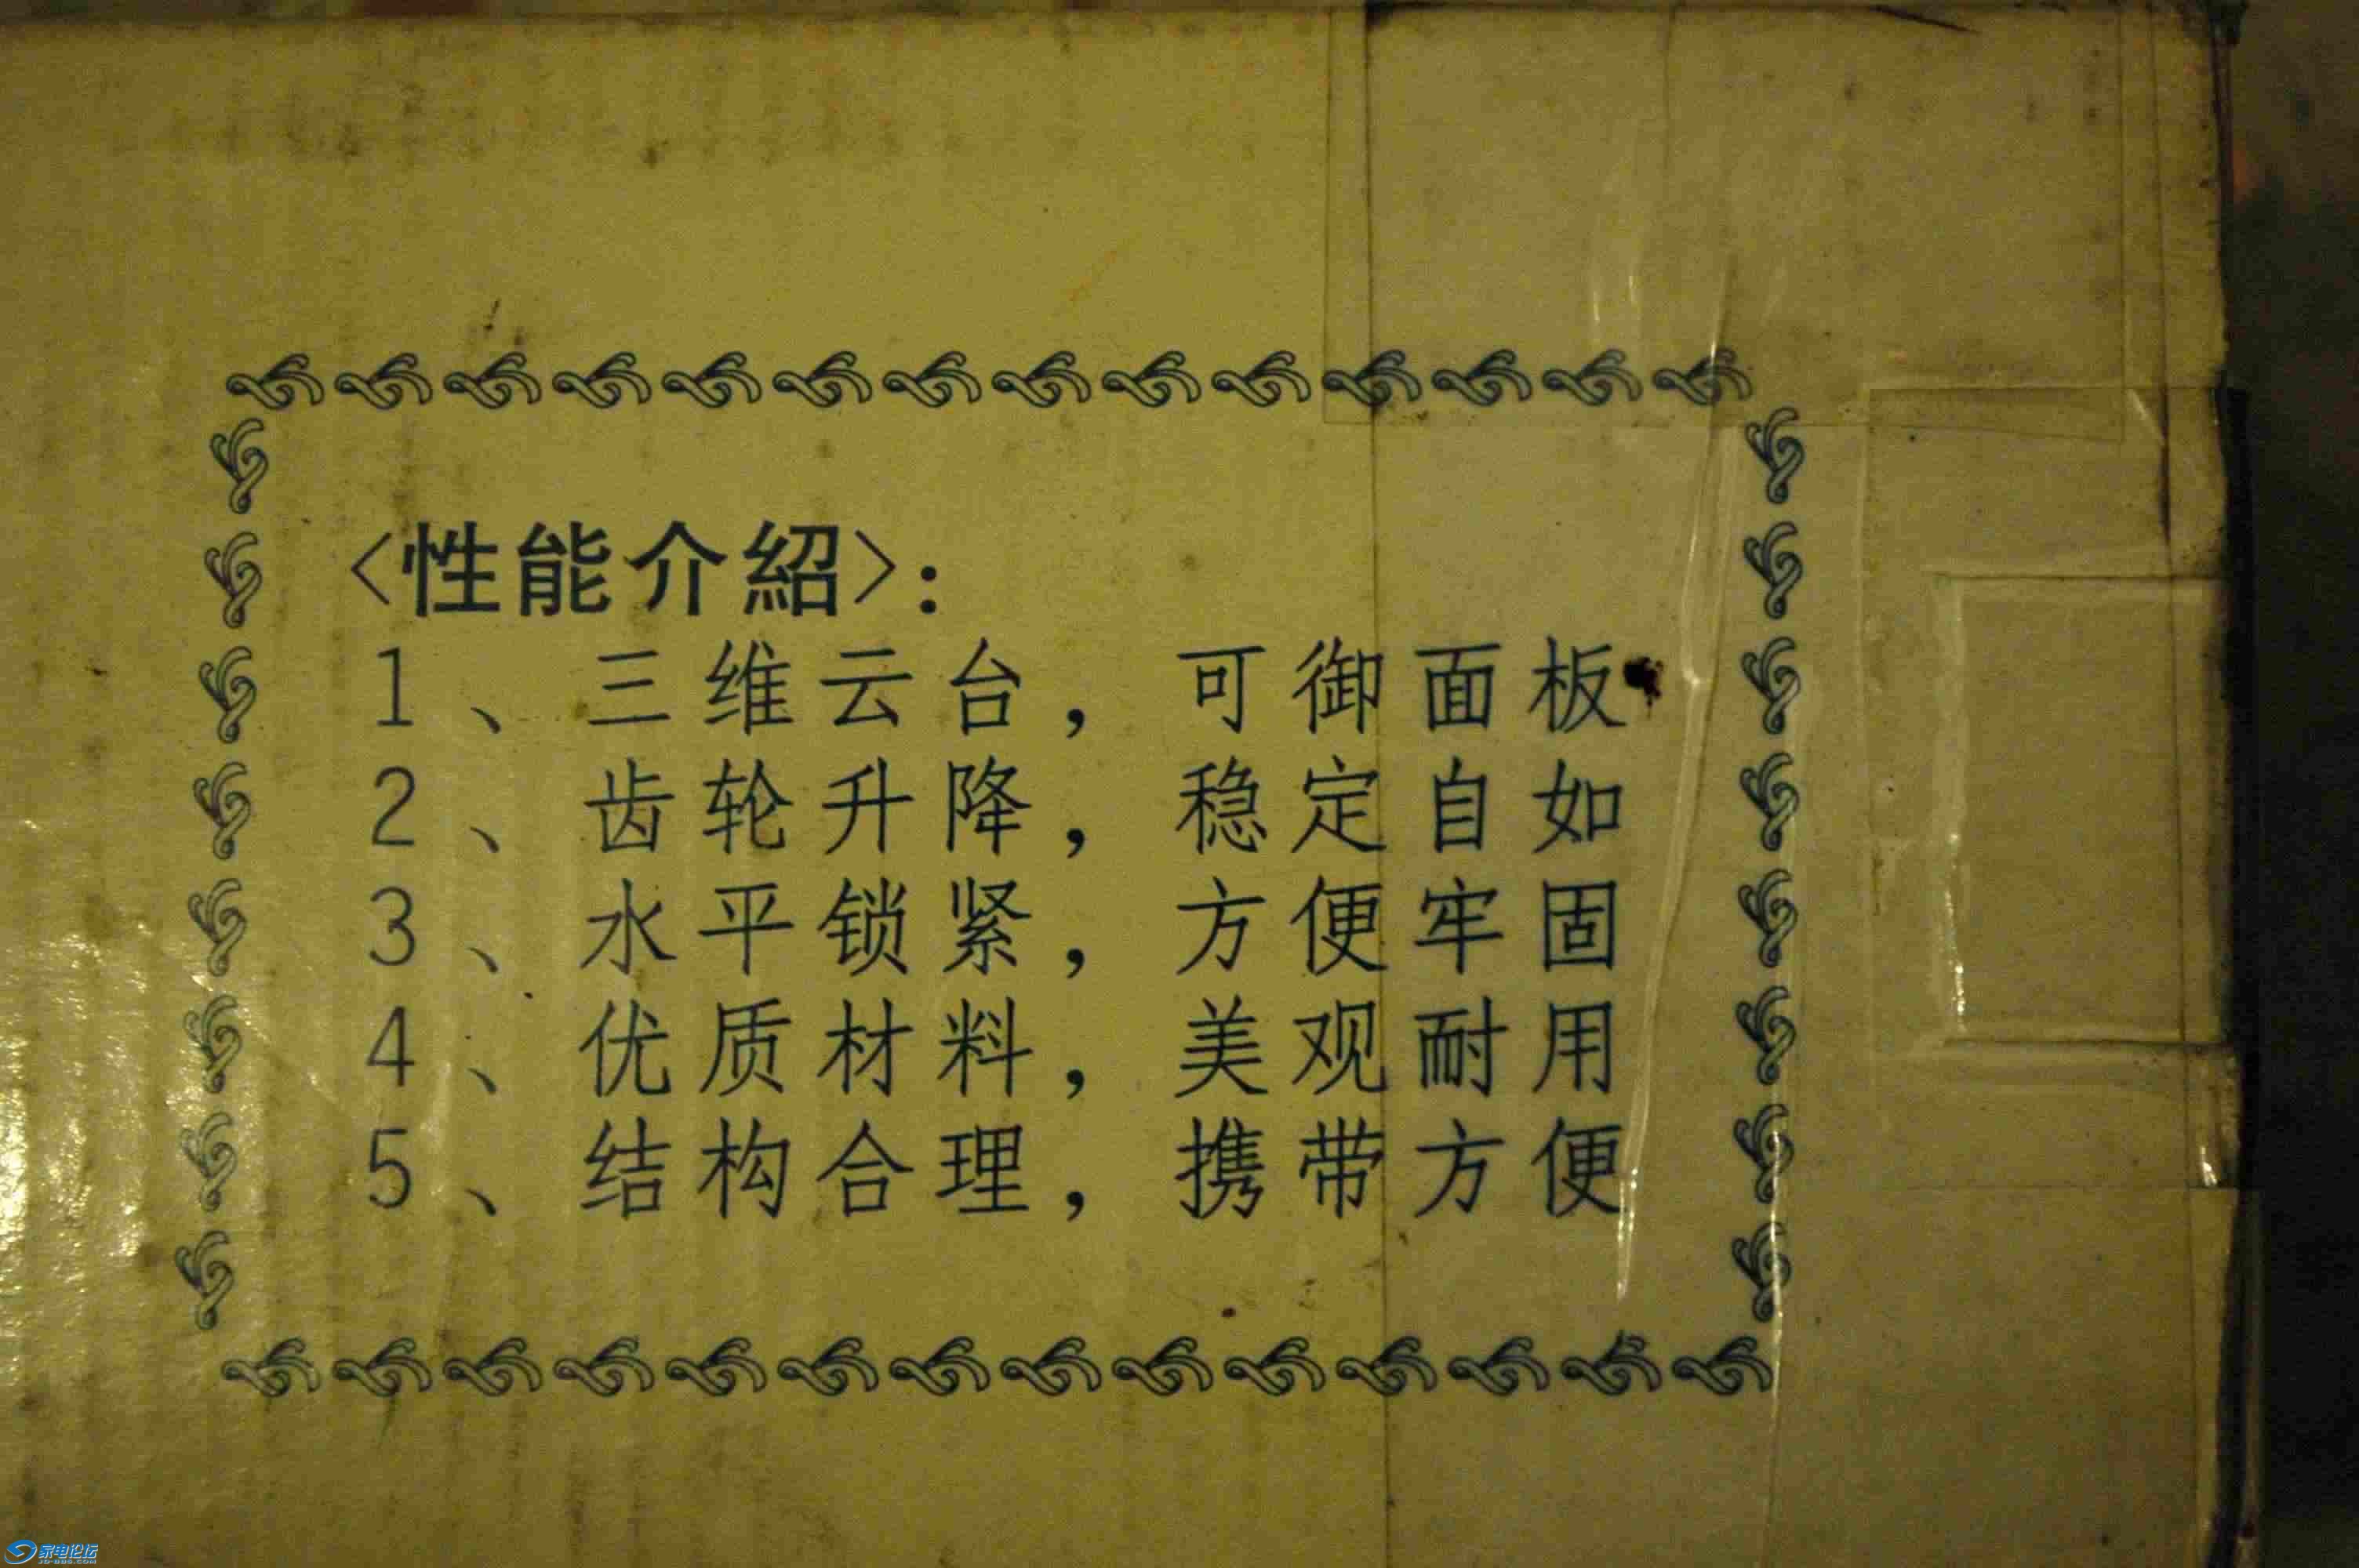 <性能介紹>:
1、三维云台，可御面板
2、齿轮升降，稳定自如
3、水平锁紧，方便牢固
4、优质材料，美观耐用
5、结构合理，携带方便
家电论坛
JD-BBS.COM